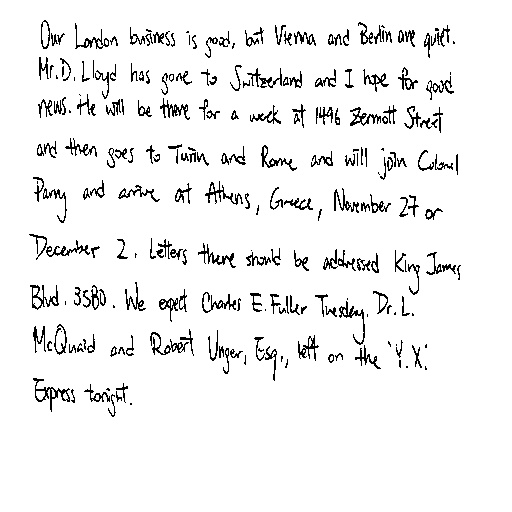 Our London business is good, but Vienna and Berlin are quiet.
Mr. D. Lloyd has gone to Switzerland and I hope for good
news. He will be there for a week at 1496 Zermott Street
and then goes to Turin and Rome and will join Colonel
Parry and arrive at Athens, Greece, November 27 or
December 2. Letters there should be addressed King James
Blvd. 3580. We expect Charles E. Fuller Tuesday. Dr. L.
McQuaid and Robert Unger, Esq., left on the 'Y.X.'
Express tonight.